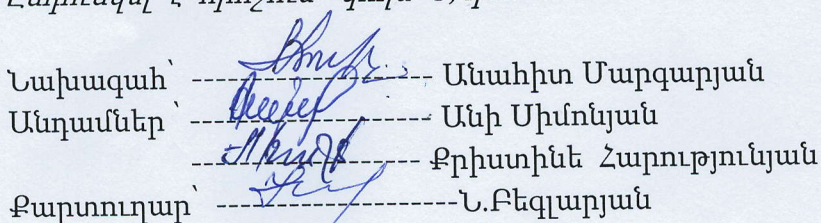 Նախագահ՝ ---------------------- Անահիտ Մարգարյան
Անդամներ՝ ---------------------- Անի Սիմոնյան
---------------------- Քրիստինե Հարությունյան
Քարտուղար՝ ----------------------Ն.Բեգլարյան